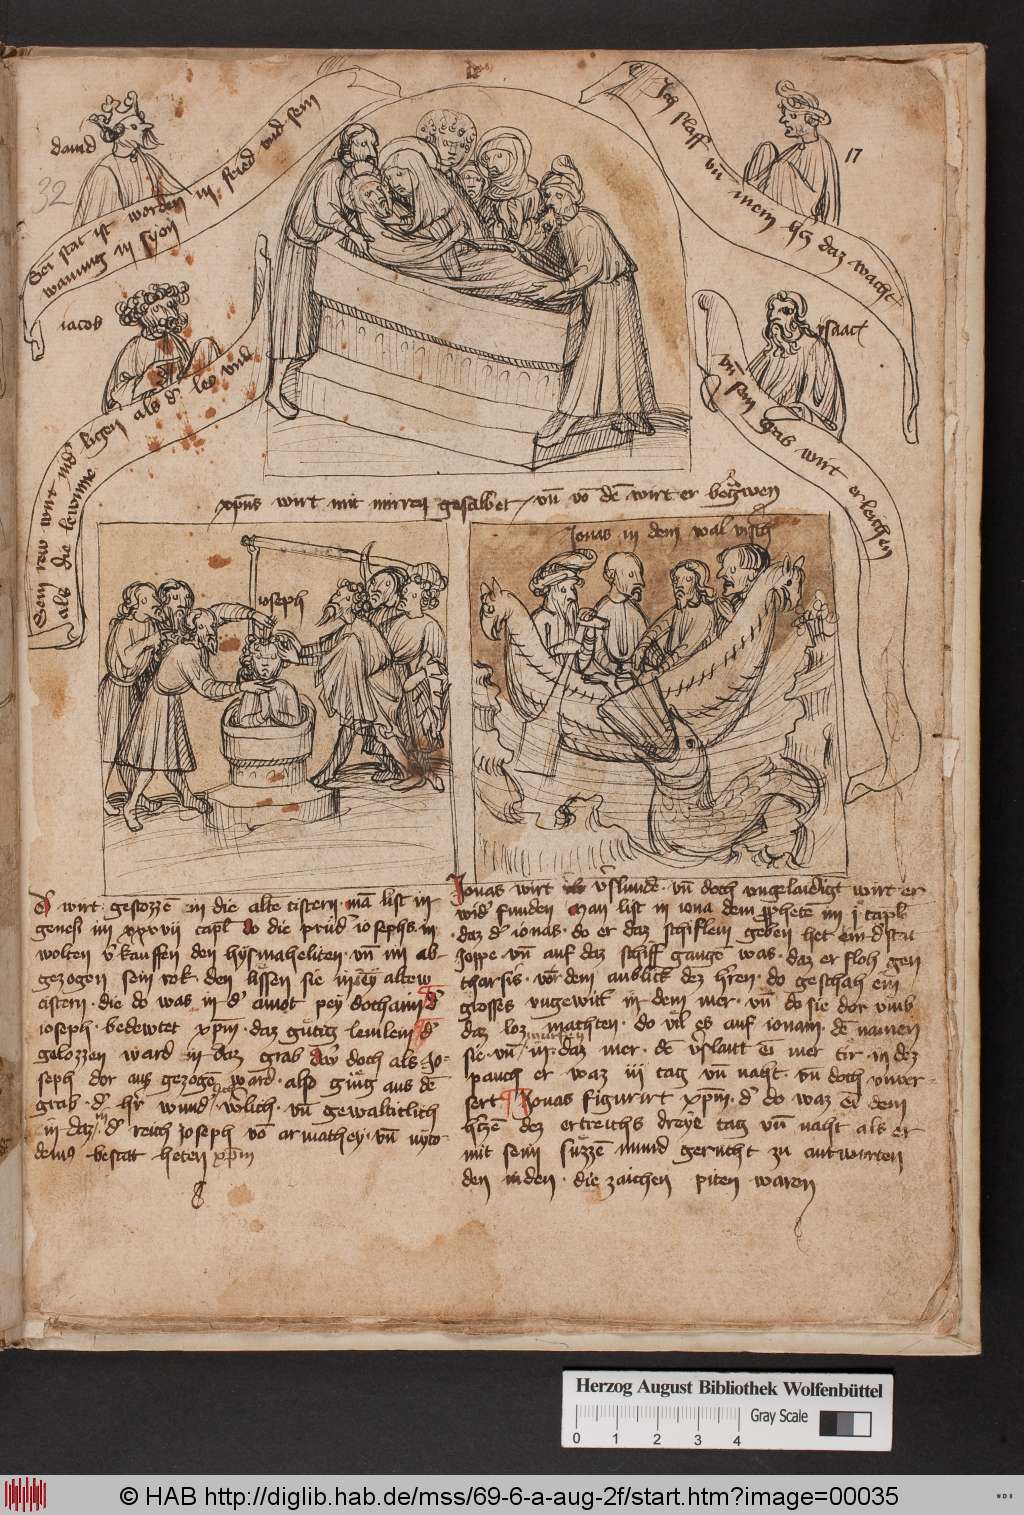 dauid
32
Sei stat ist worden in fried vnd sein
wanung in syon
Ich slaff vn̄ mein hcz daz wacht
17
iacob
Sein rew wirt nid̕ ligen als d̕ leo vnd
als die lewinne
ysaac
vn̄ sein grab wirt erleichen
xp̄us wirt mit mirren gesalbet vn̄ vō dē wirt er
ioseph
Jonas in dem wal visch
Er wirt gestozzē in die alte cistern · mā list in
genesi im xxxvii capl̄ do die prud̕ iosephs in
wolten v̕kauffen den hysmaheliten · vn̄ im ab-
gezogen sein rok · den liessen sie in ein altew
cistern · die do was in d̕ ainot pey dothaim d̕
ioseph · bedewtet xp̄m · daz gutig lemlein d̕
gelozzen ward in daz grab dar doch als Jo-
seph dor aus gezogē ward · also ging aus dē
grab · d̕ hr̄ wund̕ · wlich · vn̄ gewaltiklich
in daz in d̕ reich Joseph vō armathey · vn̄ nyco-
dem9 bestat heten xp̄m
Jonas wirt v̕slunde · vn̄ doch vngelaidigt wirt er
wid̕ funden Man list in iona dem ꝓphetē im j capl̄
daz d̕ ionas · do er daz schiflein geben het ein d̕ stat
Joppe vn̄ auf daz schiff gange was · daz er floh gen
tharsis · vor dem anblick dez h̕ren · do geschah ein
grosses vngewit̕ in dem mer · vn̄ do sie dor vmb
daz loz machten · do vil es auf ionam · dē namen
sie · vn̄ wurfen in daz mer · dē v̕slant ei mer tir · in dez
pauch er waz iii tag vn̄ nacht · vn̄ doch vnver-
sert Jonas figurirt xp̄m · d̕ do waz ei dem
h̕czē dez ertreichs dreye tag vn̄ nacht als er
mit sein suzzē mund gerucht zu antwurten
den iuden · die zaichen piten waren
Herzog August Bibliothek Wolfenbüttel
Gray Scale
0 1 2 3 4
© HAB http://diglib.hab.de/mss/69-6-a-aug-2f/start.htm?image=00035